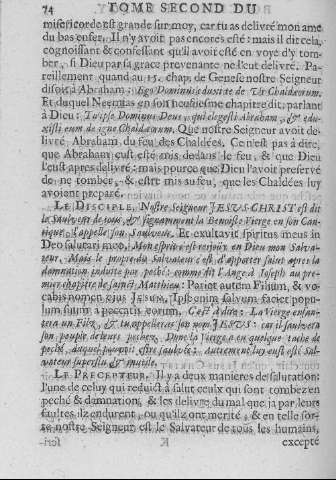 74 TOME SECOND DU
misericorde est grande sur moy, car tu as delivré mon ame
du bas enfer. Il n'y avoit pas encores esté: mais il dit cela,
cognoissant & confessant qu'il avoit esté en voye d'y tom-
ber, si Dieu par sa grace prevenante ne l'eut delivré. Pa-
reillement quand au 15. chap. de Genese nostre Seigneur
disoit à Abraham: Ego Dominus duxi te de Ur Chaldæorum.
Et duquel Neemias en son neufiesme chapitre dit, parlant
à Dieu: Tu ipse Dominus Deus, qui elegisti Abraham, & edu-
xisti eum de igne Chaldæorum. Que nostre Seigneur avoit de-
livré Abraham du feu des Chaldées. Ce n'est pas à dire,
que Abraham eust esté mis dedans le feu, & que Dieu
l'eust apres delivré: mais pource que Dieu l'avoit preservé
de ne tomber, & estre mis au feu, que les Chaldées luy
avoient preparé.
LE DISCIPLE. Nostre Seigneur JESUS-CHRIST est dit
le Sauveur de tous, & signamment la Benoiste Vierge en son Can-
tique l'appelle son Sauveur. Et exultavit spiritus meus in
Deo salutari meo. Mon esprit s'est resjouy en Dieu mon Salva-
teur. Mais le propre du Salvateur c'est d'apporter salut apres la
damnation induite par peché: comme dit l'Ange à Joseph au pre-
mier chapitre de sainct Matthieu: Pariet autem Filium, & vo-
cabis nomen ejus JESUM, Ipse enim salvum faciet popu-
lum suum à peccatis eorum. C'est à dire: La Vierge enfan-
tera un Filz, & tu appelleras son nom JESUS: car il saulvera
son peuple de leurs pechez. Donc la Vierge a eu quelque tache de
peché, duquel pouvoit estre saulvée: Autrement luy eust esté Sal-
vateur superflu & inutile.
LE PRECEPTEUR. Il y a deux manieres de salutation:
l'une de celuy qui reduict à salut ceulx qui sont tombez en
peché & damnation, & les delivre du mal que ja par leurs
faultes ilz endurent, ou qu'ilz ont merité, & en telle sor-
te nostre Seigneur est le Salvateur de tous les humains,
K excepté